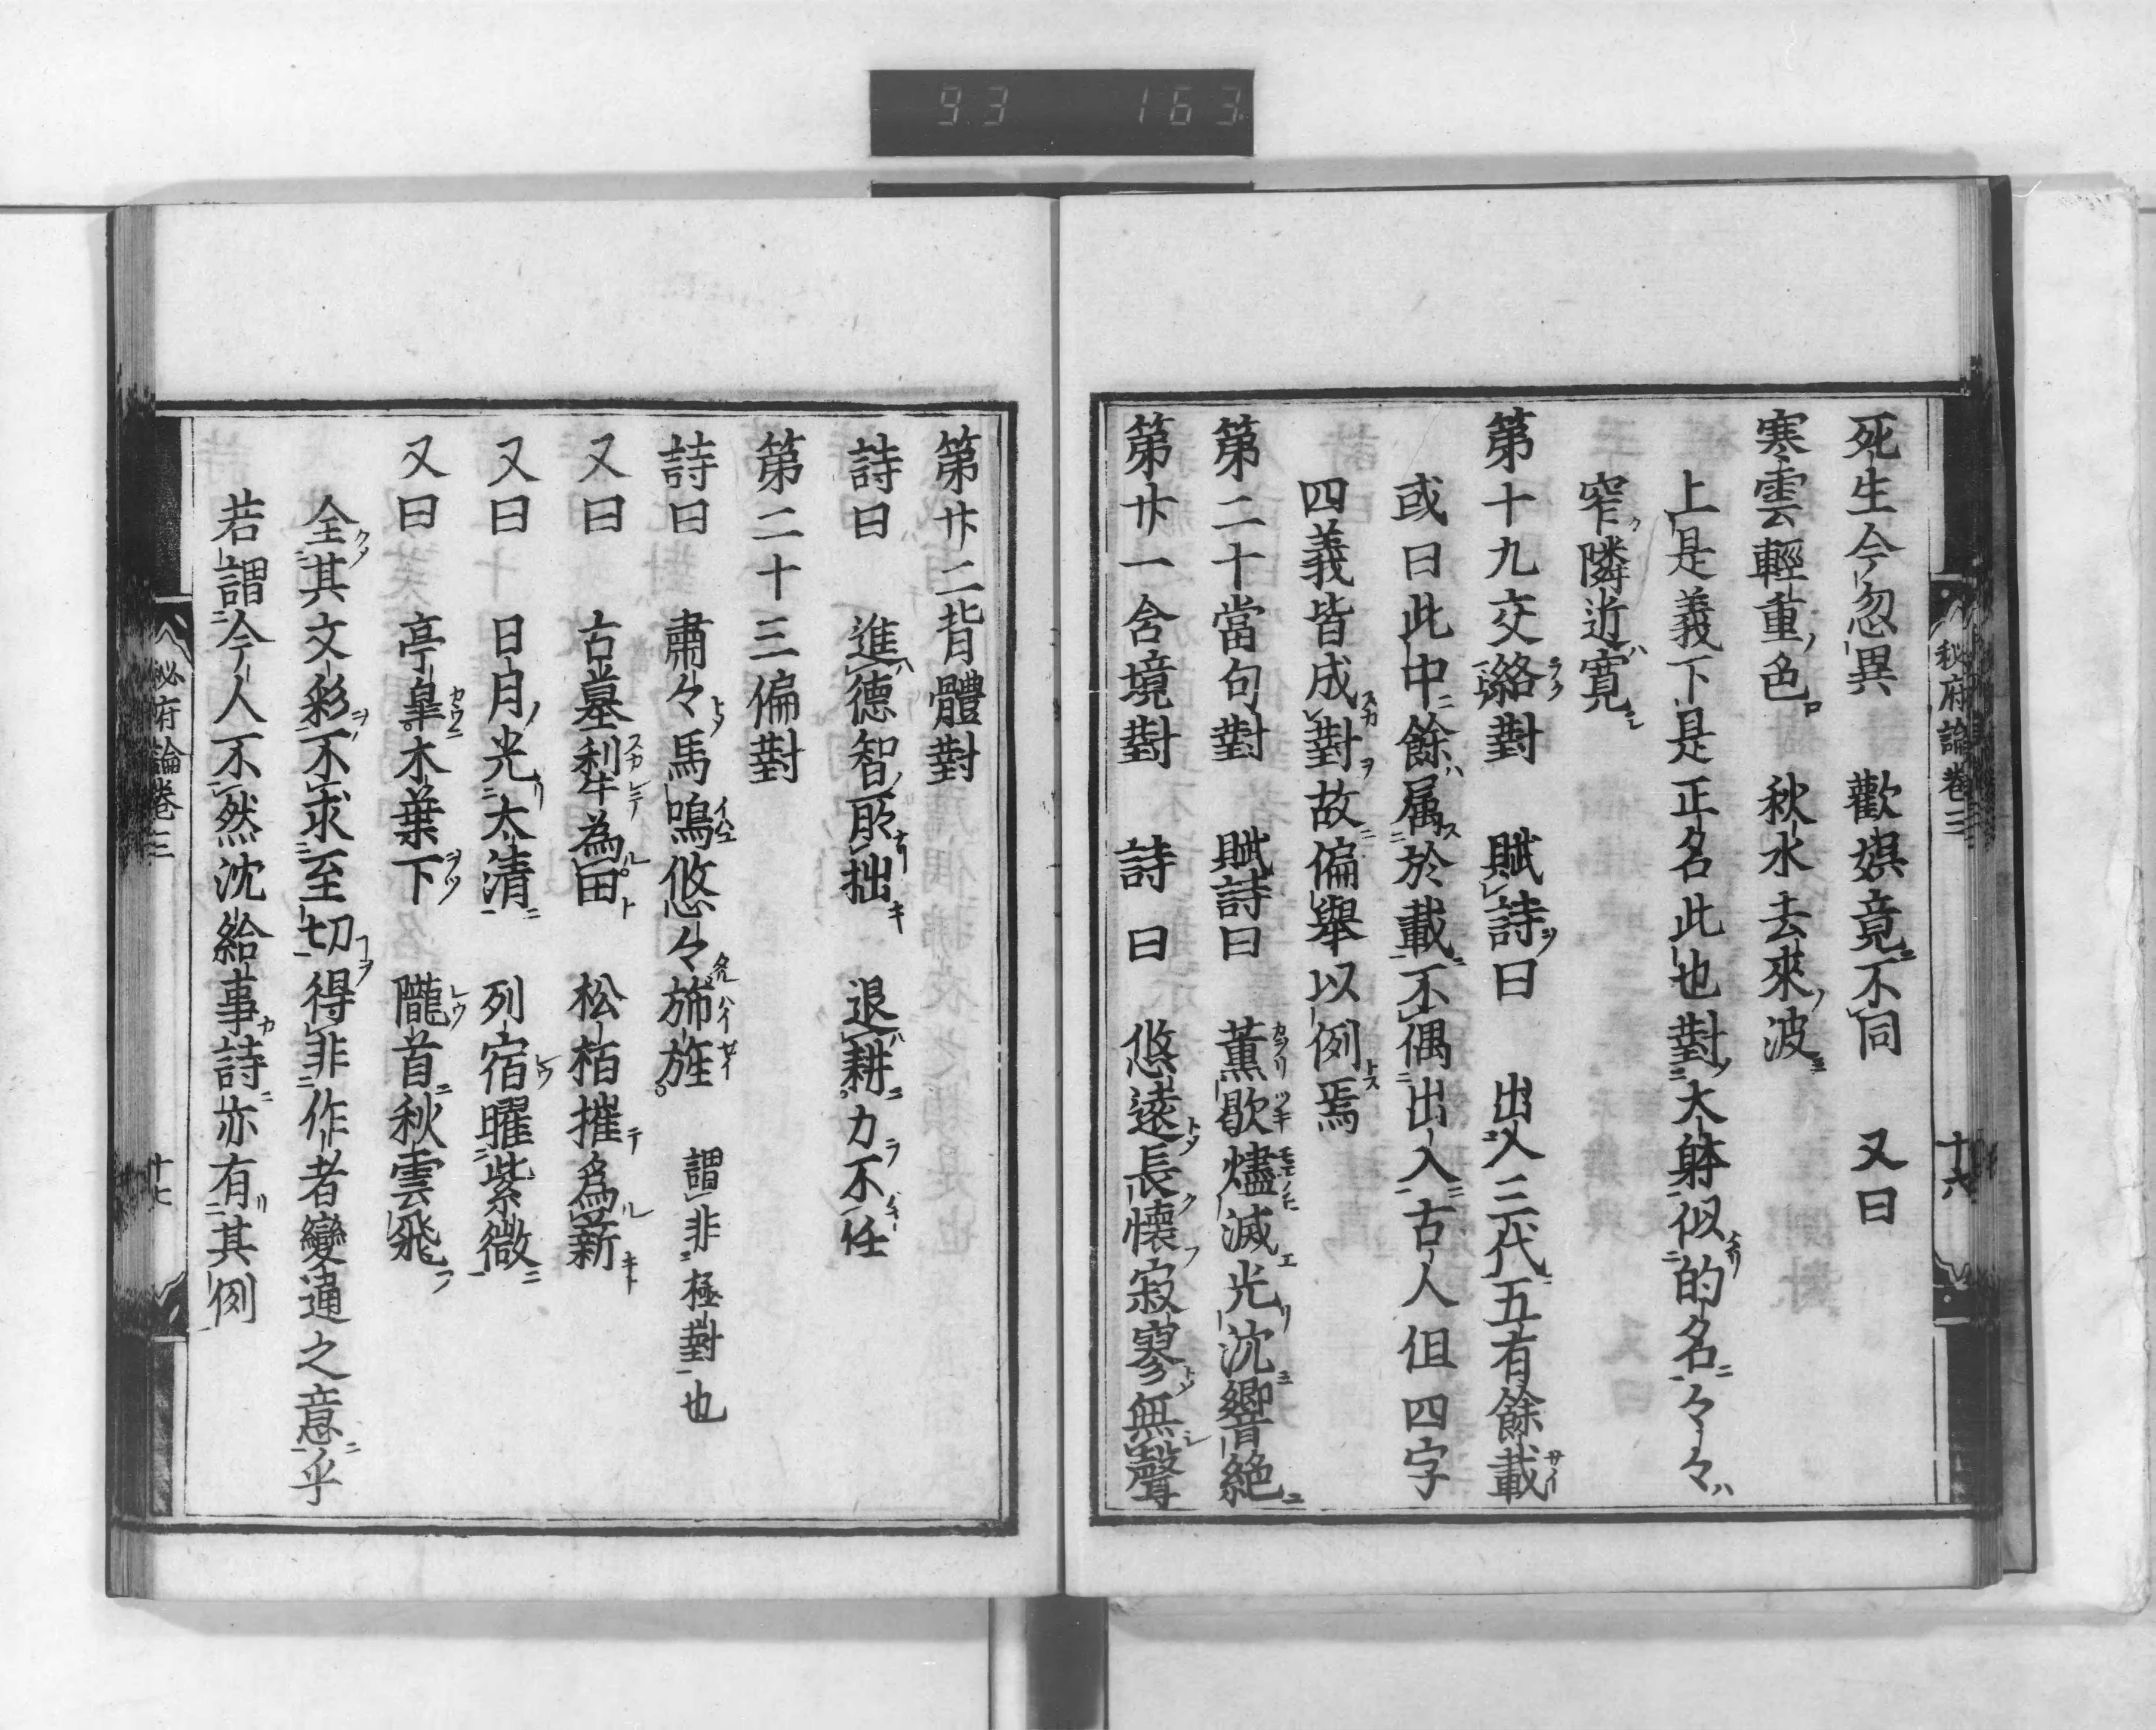 93 163
秘府論卷三 十六
死生今忽異 歡娯竟不同 又曰
寒雲輕重色 秋水去來波
上是義下是正名此也對大躰似的名々々
窄隣近寛
第十九交絡對 賦詩曰 出入三代五有餘載
或曰此中餘属於載不偶出入古人伹四字
四義皆成對故偏舉以例焉
第二十當句對 賦詩曰 薫歇燼滅光沈響絶
第廿一含境對 詩曰 悠遠長懐寂寥無聲
第廿二背體對
詩曰 進德智所拙 退耕力不任
第二十三偏對
詩曰 肅々馬鳴悠々旆旌 謂非極對也
又曰 古墓犁為田 松栢摧爲薪
又曰 日月光大清 列宿曜紫微
又曰 亭皐木葉下 隴首秋雲飛
全其文彩不求至切得非作者變通之意乎
若謂今人不然沈給事詩亦有其例
秘府論卷三 十七